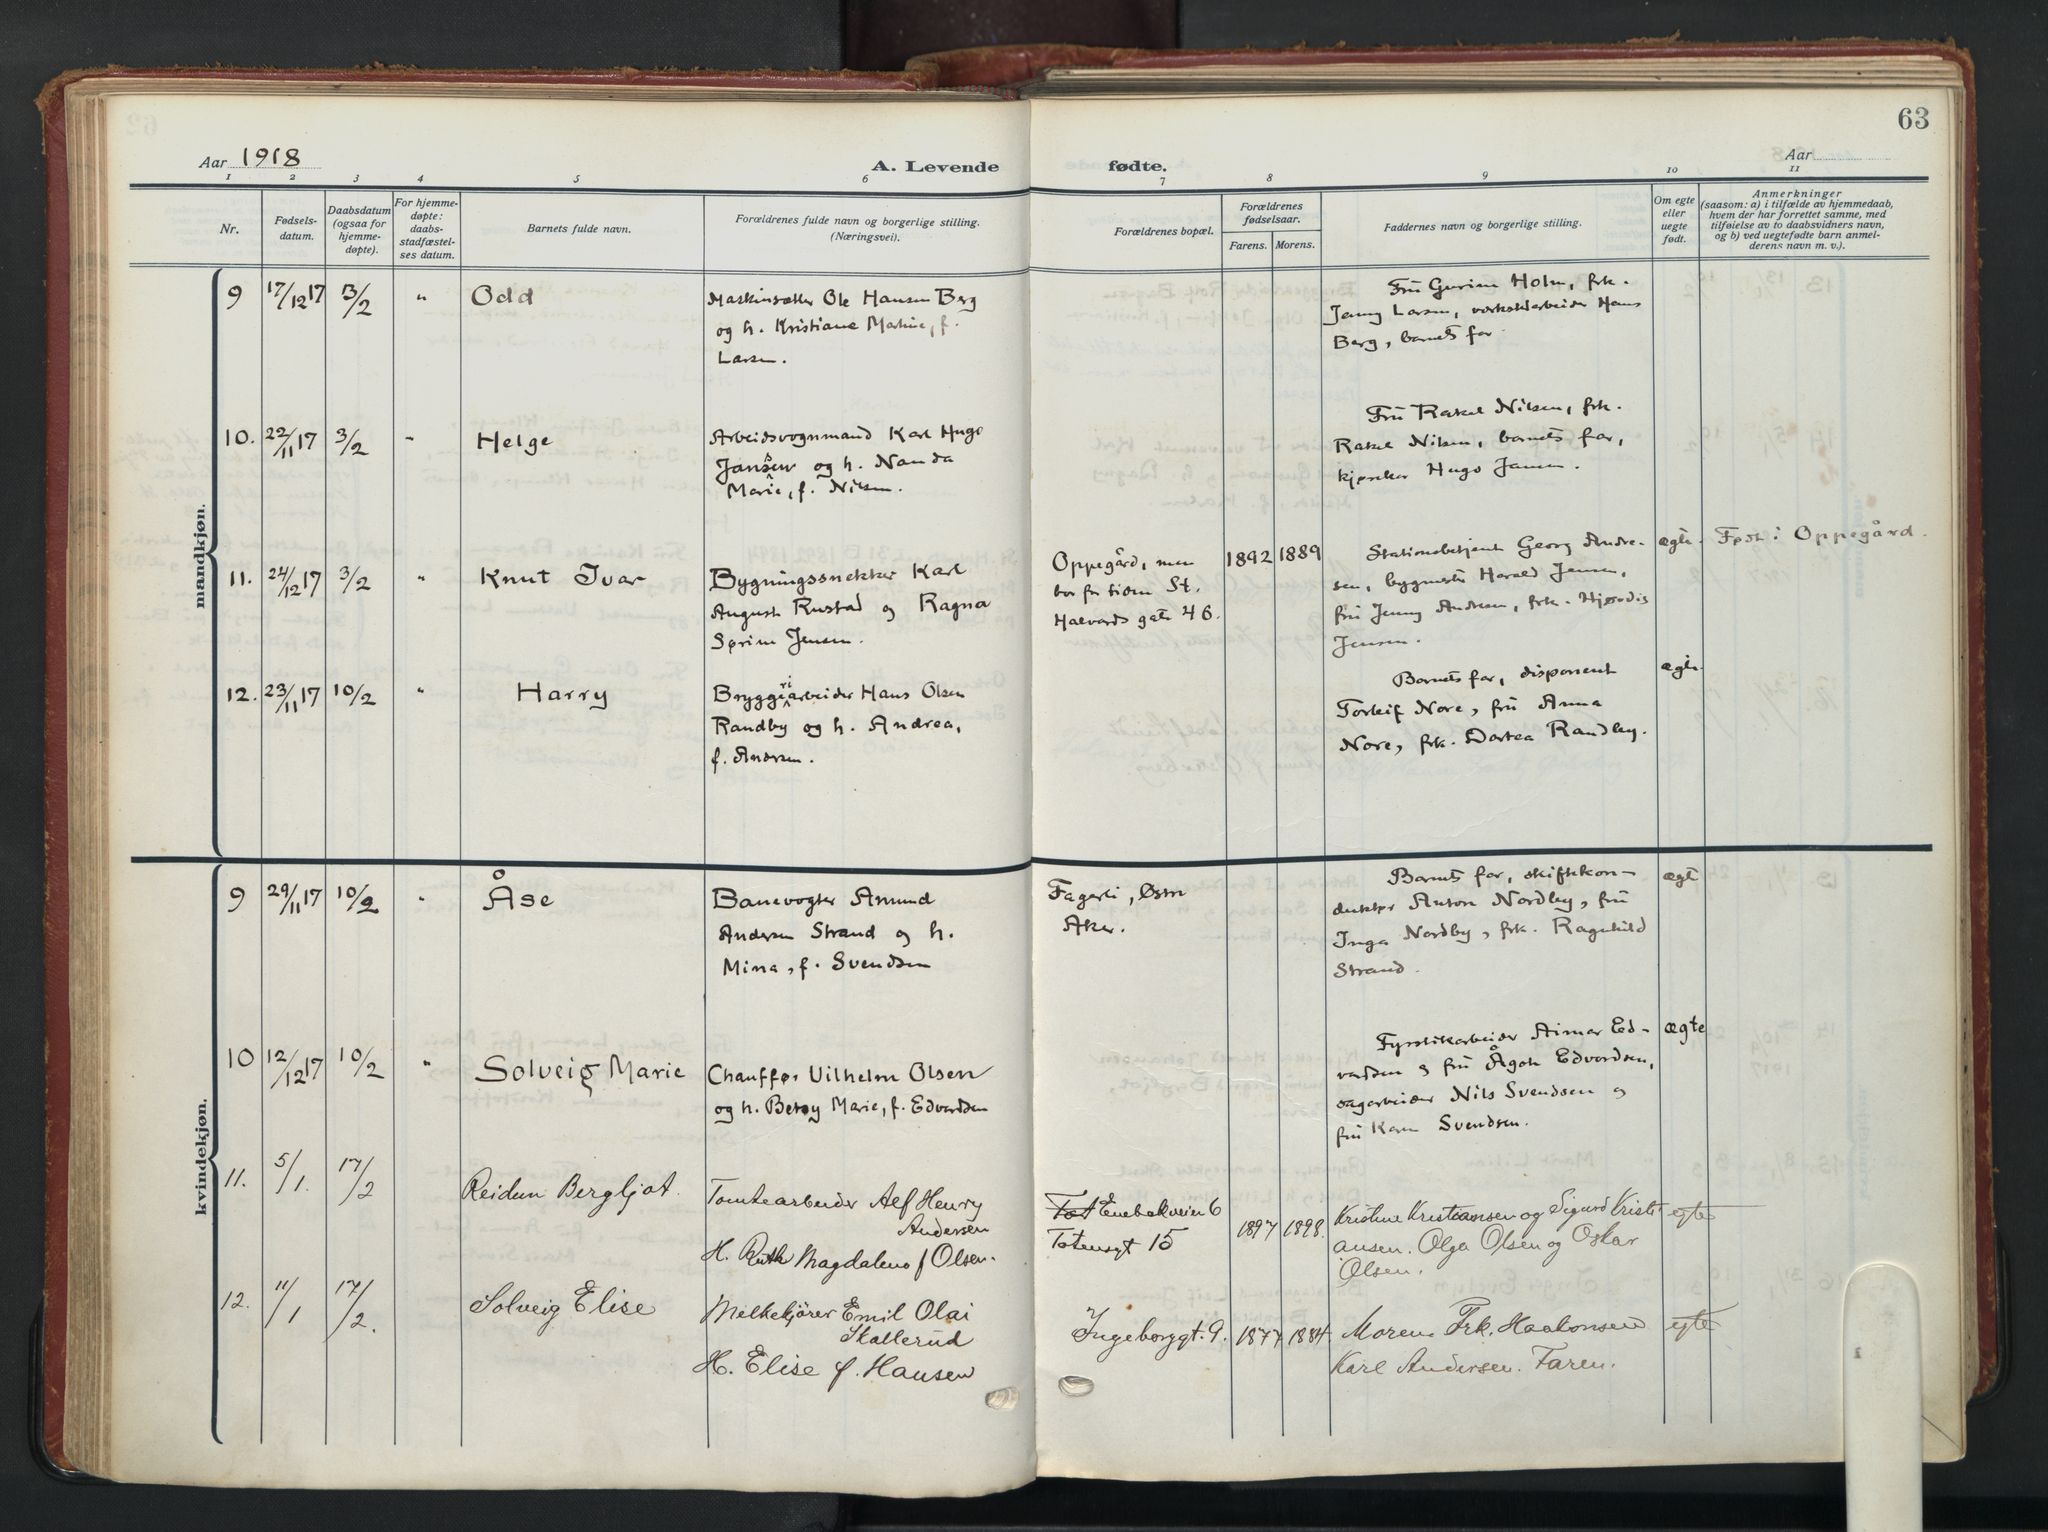 63
Aar 1918
A. Levende
fødte.
Aar
1 2 3 4 5 6 7 8 9 10 11
Nr.
Fødsels-
datum.
Daabsdatum
(ogsaa for
hjemme-
døpte).
For hjemme-
døpte:
daabs-
stadfæstel-
ses datum.
Barnets fulde navn.
Forældrenes fulde navn og borgerlige stilling.
(Næringsvei).
Forældrenes bopæl.
Forældrenes
fødselsaar.
Farens. Morens.
Faddernes navn og borgerlige stilling.
Om egte
eller
uegte
født.
Anmerkninger
(saasom: a) i tilfælde av hjemmedaab,
hvem der har forrettet samme, med
tilføielse av to daabsvidners navn,
og b) ved uegtefødte barn anmel-
derens navn m. v.).
mandkjøn.
9 17/12 17 13/2 " Odd
Maskinsætter Ole Hansen Berg
og h. Kristiane Marine, f.
Larsen.
Frü Gurine Holm, frk.
Jenny Larsen, verkstdarbeider Hans
Berg, barnets far
10. 22/11 17 3/2 " Helge
Arbeidsvognmand Karl Hugo
Jansen og h. Nanda
Marie, f. Nilsen.
Frü Rakel Nilsen, frk.
Rakel Nilsen, barnets far,
Hugo Jansen.
11. 24/12 17 3/2 " Knut Ivar
Bygningssnekker Karl
August Rustad og Ragna
Sørine Jensen.
Oppegård, men
bor for tiden St.
Halvards gate 46.
1892 1889
Stationsbetjent Georg Andre-
sen, bygmester Harald Jensen,
frü Jenny Andresen, frk. Hjørdis
Jensen.
ægte
Født i Oppegård.
12. 23/11 17 10/2 " Harry
Bryggeriarbeider Hans Olsen
Randby og h. Andrea,
f. Andersen.
Barnets far, disponent
Torleif Nore, frü Anna
Nore, frk. Dortea Randby.
ægte
kvindekjøn.
9 29/11 17 10/2 " Åse
Banevogter Amund
Andersen Strand og h.
Mina, f. Svendsen
Fagerli, Østre
Aker.
Barnets far, skiftekon-
duktør Anton Nordby, frü
Inga Nordby, frk. Ragnhild
Strand.
ægte
10 12/12 17 10/2 " Solveig Marie
Chauffør Vilhelm Olsen
og h. Betsy Marie, f. Edvardsen
Fyrstikarbeider Aimar Ed-
vardsen og frü Ågot Edvardsen,
dagarbeider Nils Svendsen og
frü Karen Svendsen.
ægte
11. 5/1. 17/2 Reidun Bergljot.
Tomtearbeider Alf Henry
Andersen
H. Ruth Magdalena f Olsen.
Enebakveien 6
Totensgt 15
1897 1898.
Kristine Kristiansen og Sigurd Kristi-
ansen. Olga Olsen og Oskar
Olsen.
egte
12. 11/1 17/2. Solveig Elise
Melkekjører Emil Olai
Skallerud
H. Elise f. Hansen
Ingeborggt. 9.
1877 1884.
Moren Frk. Haakonsen
Karl Andersen. Faren.
egte